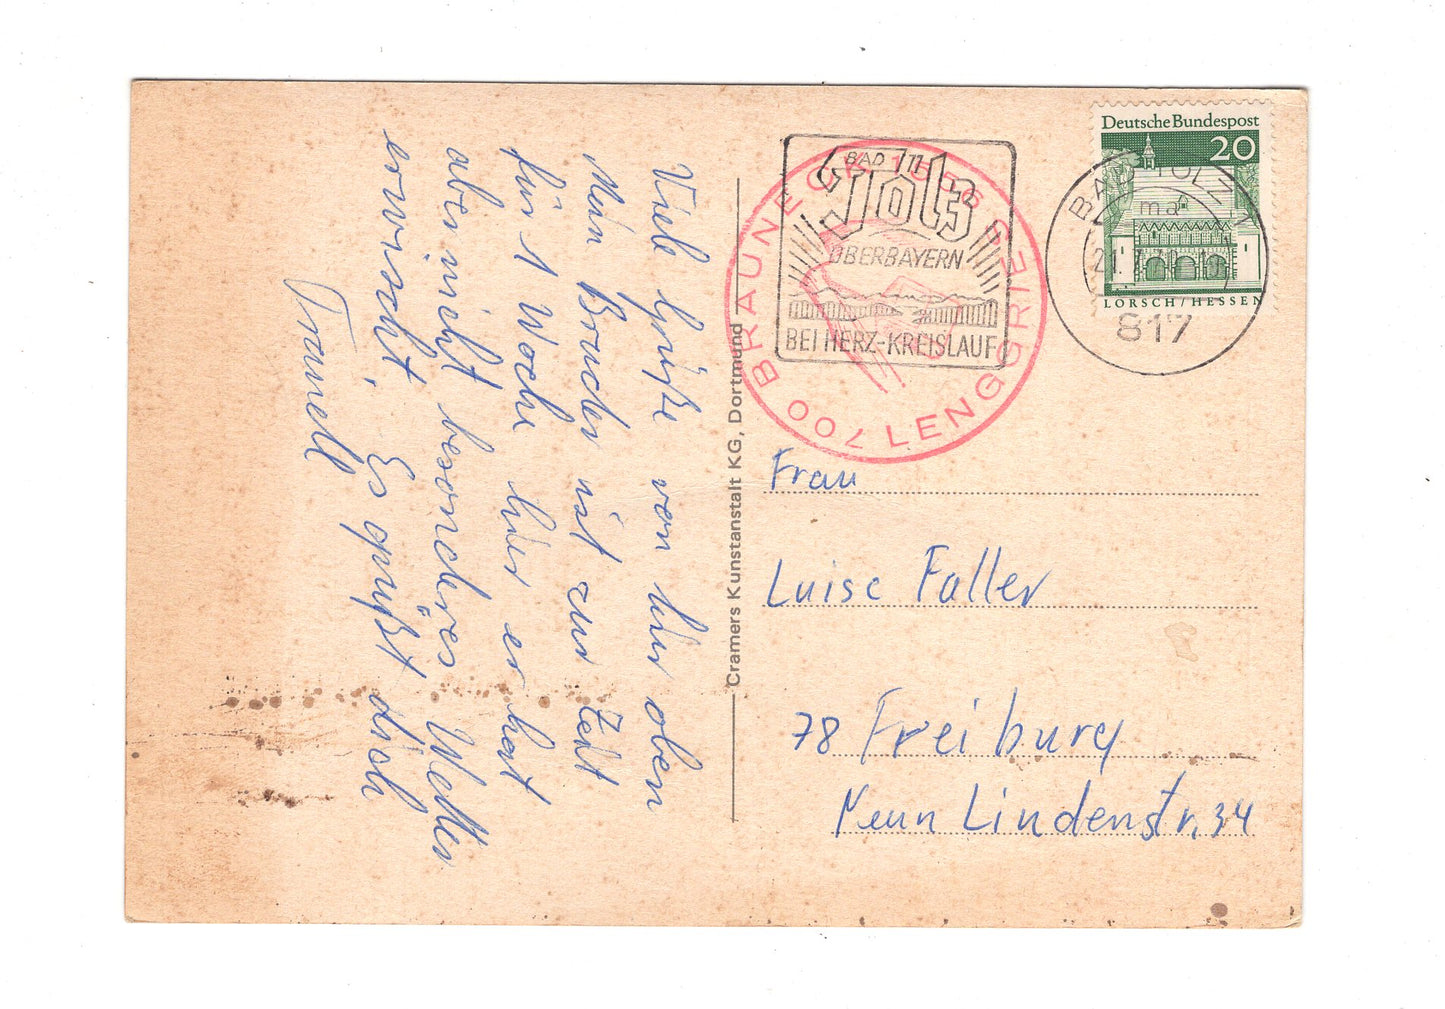 Viele Grüße von hir oben
Mein Bruder ist zur Zeit
für 1 Woche hier er hat
aber nicht besonderes Wetter
erwischt, Es grüßt dich
Traudl
Cramers Kunstanstalt KG, Dortmund
BRAUNECK 1556
700 LENGGRIES
BAD Tölz
OBERBAYERN
BEI HERZ-KREISLAUF
Deutsche Bundespost
20
LORSCH/HESSEN
BAD TÖLZ 1
ma
817
Frau
Luise Faller
78 Freiburg
Neun Lindenstr. 34